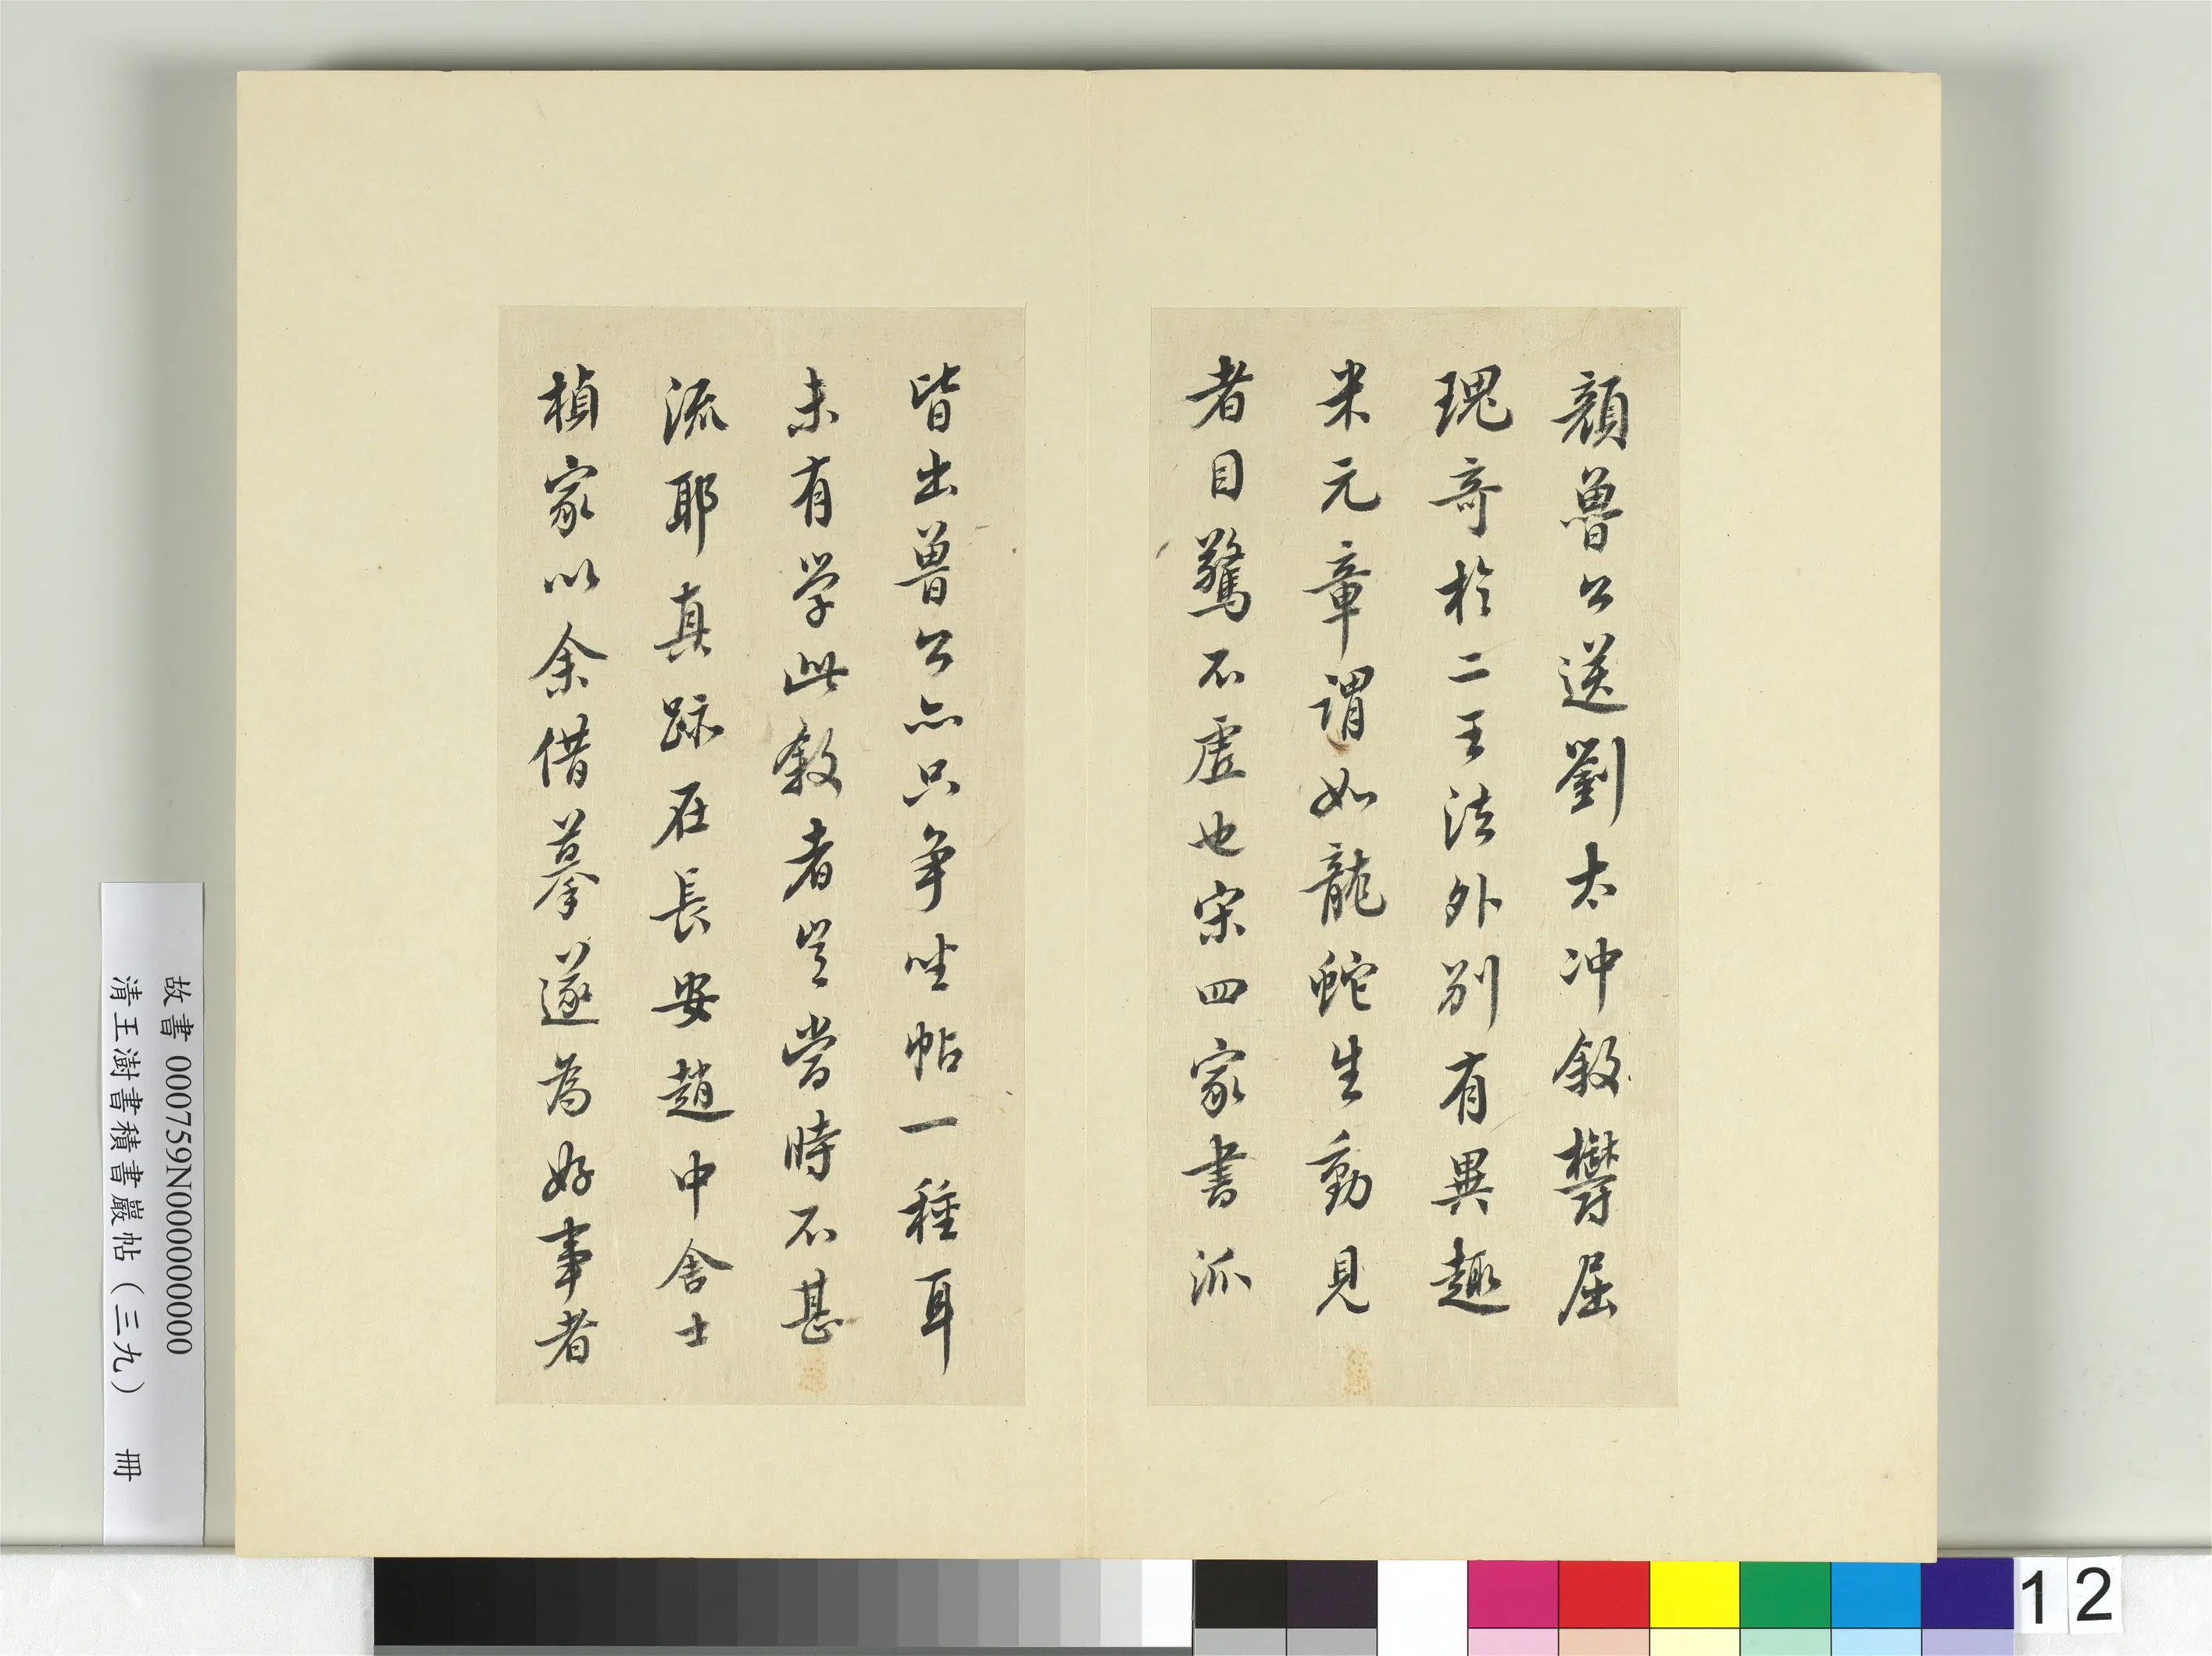 顏魯公送劉太冲敘鬱屈
瑰奇於二王法外別有異趣
米元章謂如龍蛇生動見
者目驚不虛也宋四家書派
皆出魯公亦只争坐帖一種耳
未有学此敘者豈當時不甚
流耶真跡在長安趙中舍士
楨家以余借摹遂為好事者
故書 000759N000000000
清王澍書積書巖帖（三九） 冊
12